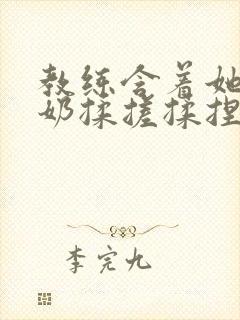 教练含着她
奶揉搓揉捏
李完九